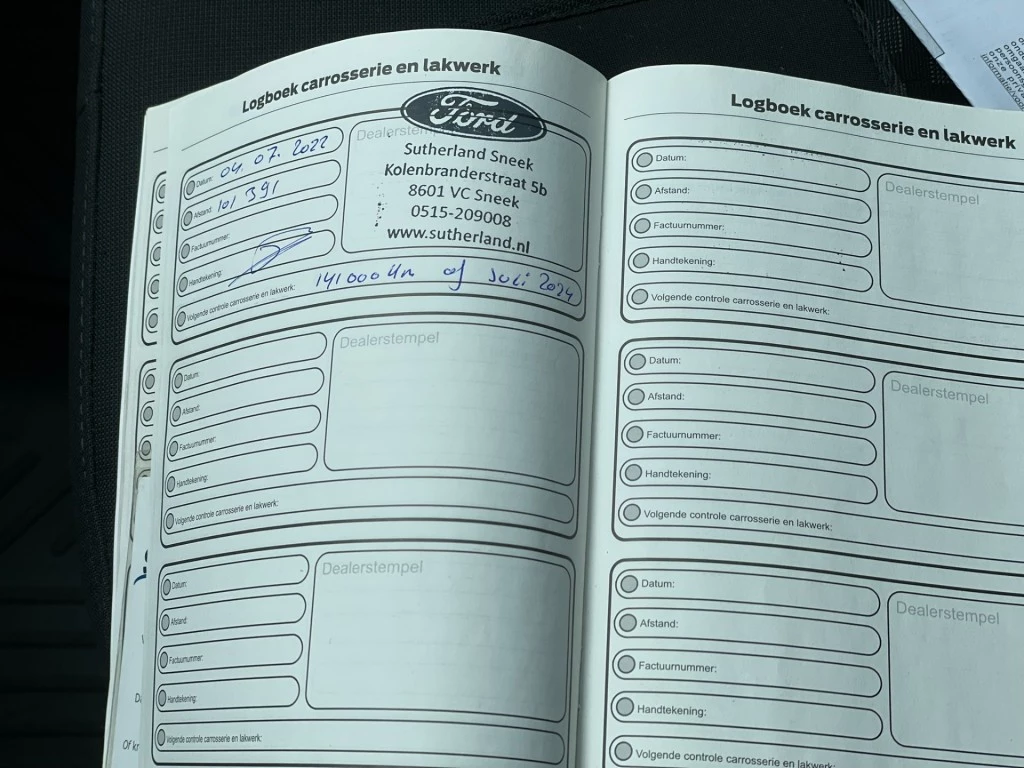 Logboek carrosserie en lakwerk
Datum: 04.07.2022
Afstand: 101 391
Factuurnummer:
Handtekening:
Volgende controle carrosserie en lakwerk: 141000 km of Juli 2024
Dealerstem
Ford
Sutherland Sneek
Kolenbranderstraat 5b
8601 VC Sneek
0515-209008
www.sutherland.nl
Datum:
Afstand:
Factuurnummer:
Handtekening:
Volgende controle carrosserie en lakwerk:
Dealerstempel
Datum:
Afstand:
Factuurnummer:
Handtekening:
Volgende controle carrosserie en lakwerk:
Dealerstempel
Logboek carrosserie en lakwerk
Datum:
Afstand:
Factuurnummer:
Handtekening:
Volgende controle carrosserie en lakwerk:
Dealerstempel
Datum:
Afstand:
Factuurnummer:
Handtekening:
Volgende controle carrosserie en lakwerk:
Dealerstempel
Datum:
Afstand:
Factuurnummer:
Handtekening:
Volgende controle carrosserie en lakwerk:
Dealerstempel
Of kr